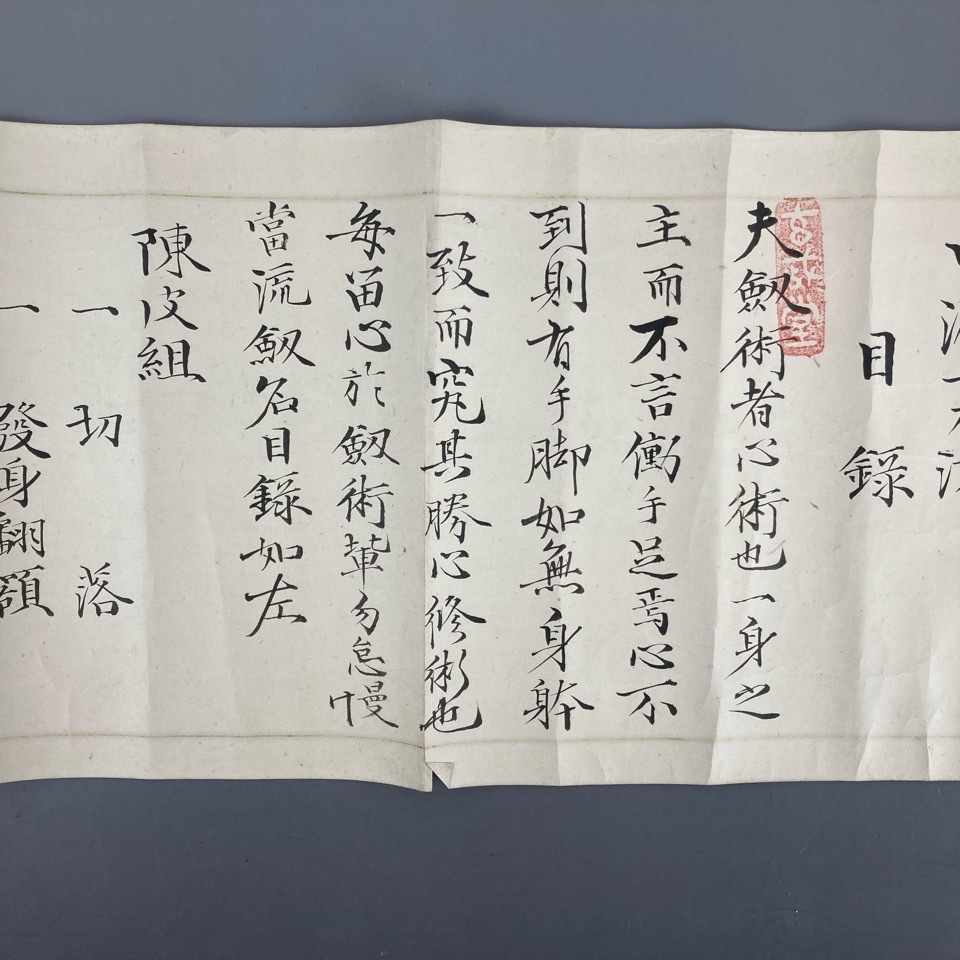 目錄
夫劔術者心術也一身之
主而不言働手足焉心不
到則有手脚如無身躰
一致而究其勝心修術也
每留心於劔術輩勿怠慢
當流劔名目錄如左
陳皮組
一切落
一發身翻額